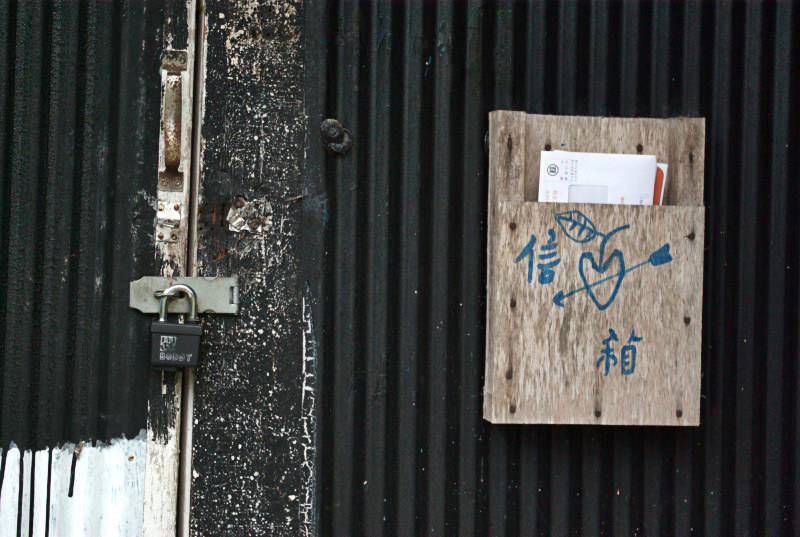 信
箱
BUDDY